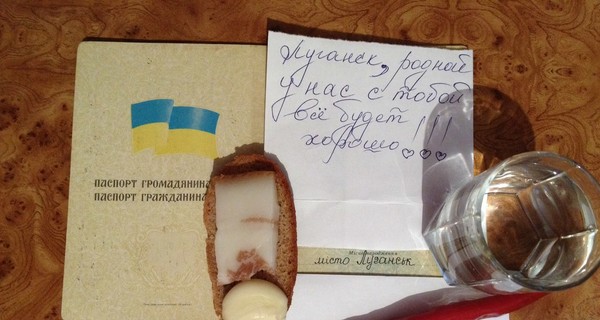 Луганск, родной
у нас с тобой
всё будет !!!
хорошо
ПАСПОРТ ГРОМАДЯНИНА
ПАСПОРТ ГРАЖДАНИНА
місто Луганськ